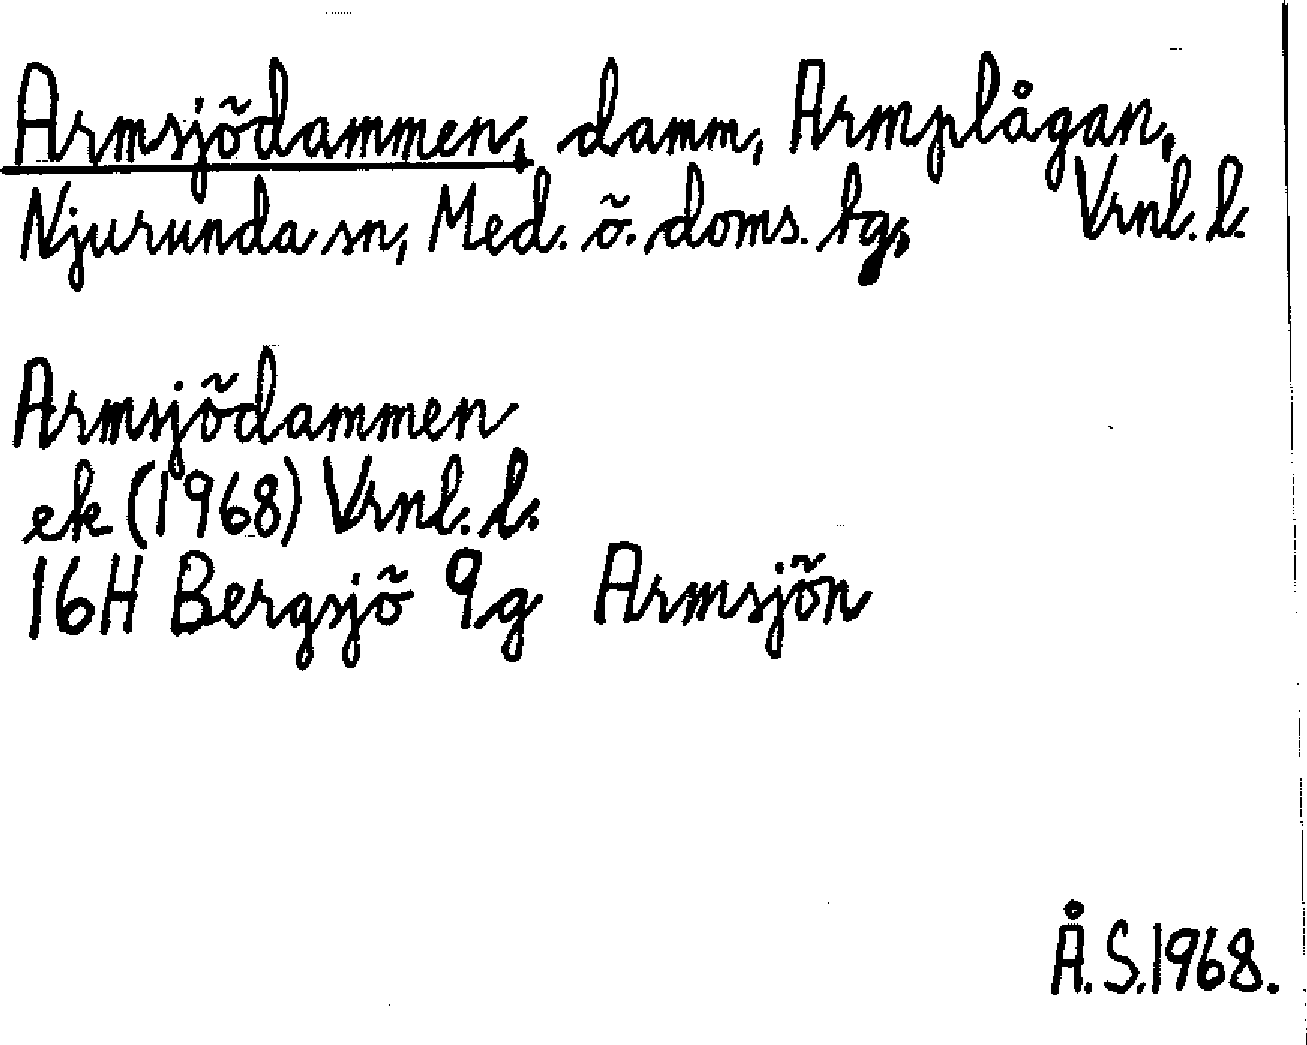 Armsjödammen, damm, Armplågan,
Njurunda sn, Med. ö. doms. tg, Vrnl. l.
Armsjödammen
ek (1968) Vrnl. l.
16H Bergsjö 9g Armsjön
Å.S.1968.